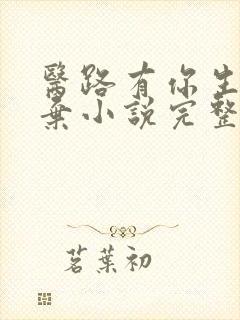 醫路有你生
棄小說完整
茗葉初